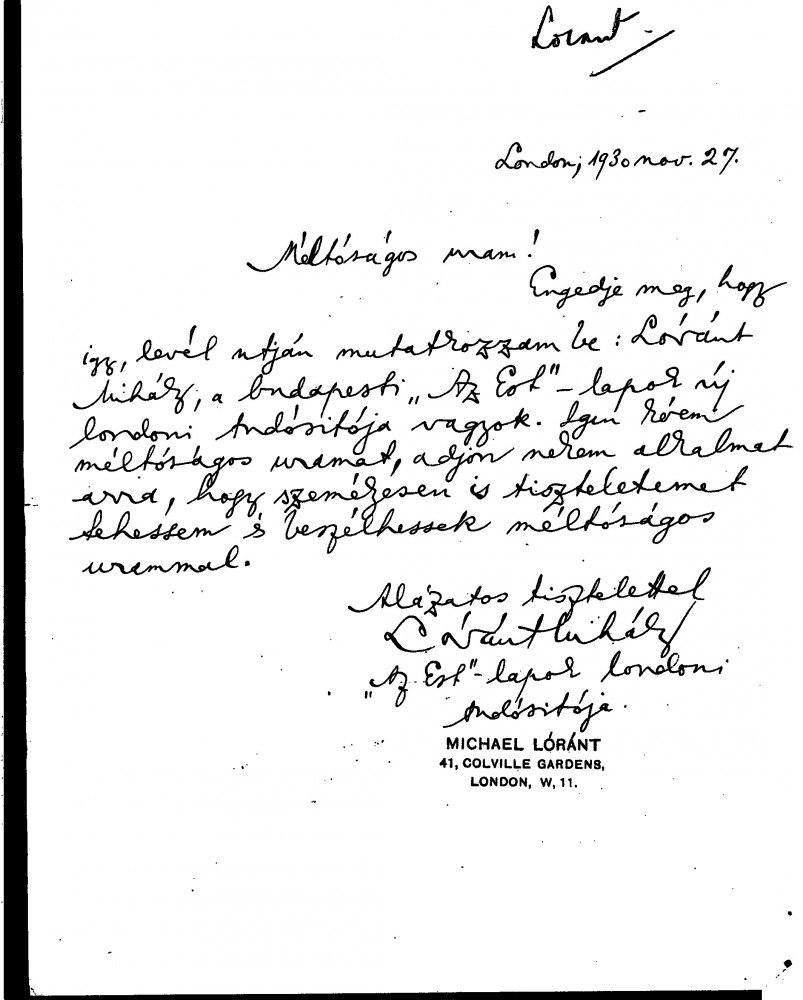 Lorant
London, 1930 nov. 27.
Méltóságos uram!
Engedje meg, hogy
igy, levél utján mutatkozzam be: Lóránt
Mihály, a budapesti „Az Est"-lapok új
londoni tudósitója vagyok. Igen kérem
méltóságos uramat, adjon nekem alkalmat
arra, hogy személyesen is tiszteletemet
tehessem és beszélhessek méltóságos
urammal.
Alázatos tisztelettel
Lóránt Mihály
„Az Est"-lapok londoni
tudósitója.
MICHAEL LÓRÁNT
41, COLVILLE GARDENS,
LONDON, W, 11.